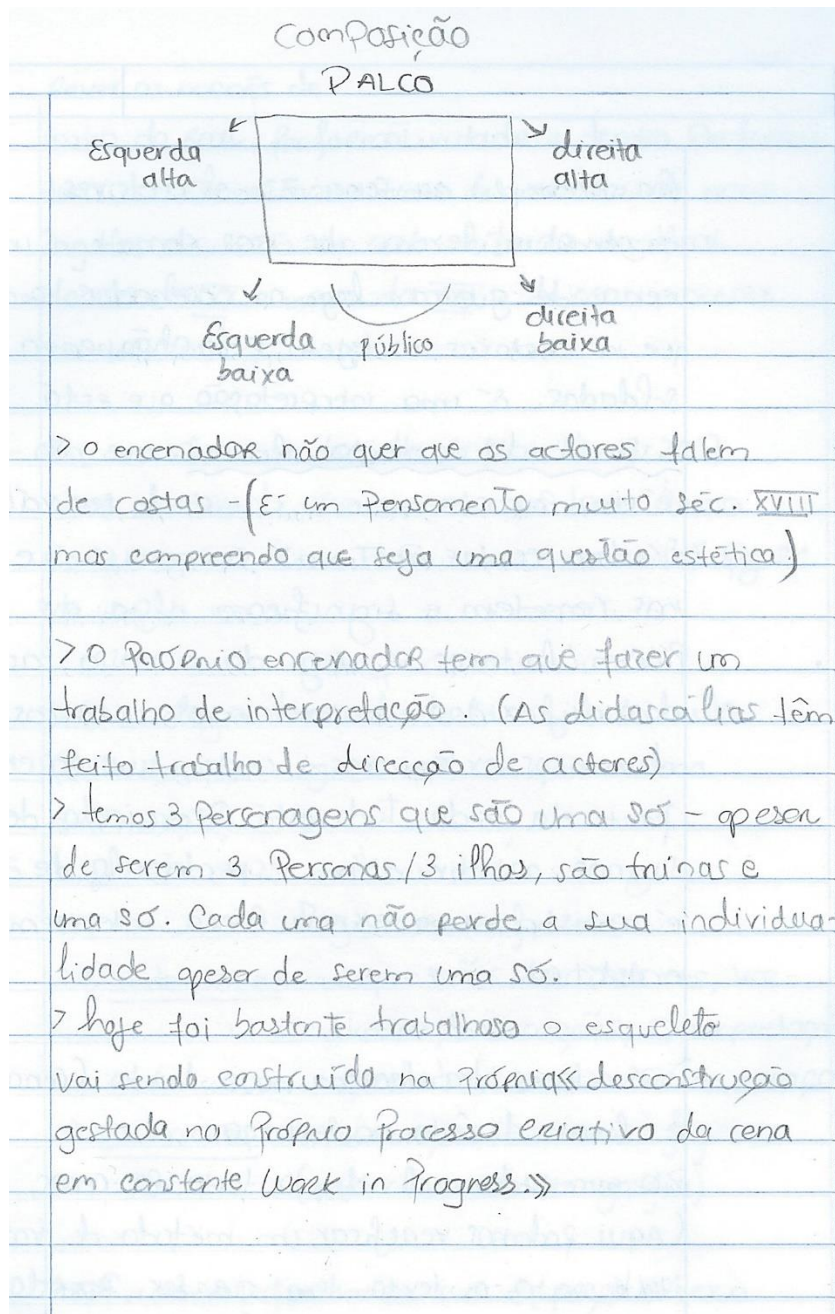 Composição
PALCO
Esquerda
alta
direita
alta
Esquerda
baixa
público
direita
baixa
> o encenador não quer que os actores falem
de costas - (É um Pensamento muito séc. XVIII
mas compreendo que seja uma questão estética)
> O Próprio encenador tem que fazer um
trabalho de interpretação. (As didascálias têm
feito trabalho de direcção de actores)
> temos 3 Personagens que são uma só - apesar
de serem 3 Personas/3 ilhas, são trinas e
uma só. Cada uma não perde a sua individua-
lidade apesar de serem uma só.
> hoje foi bastante trabalhoso o esqueleto
vai sendo construído na Própria «desconstrução
gestada no Próprio Processo criativo da cena
em constante Work in Progress.»